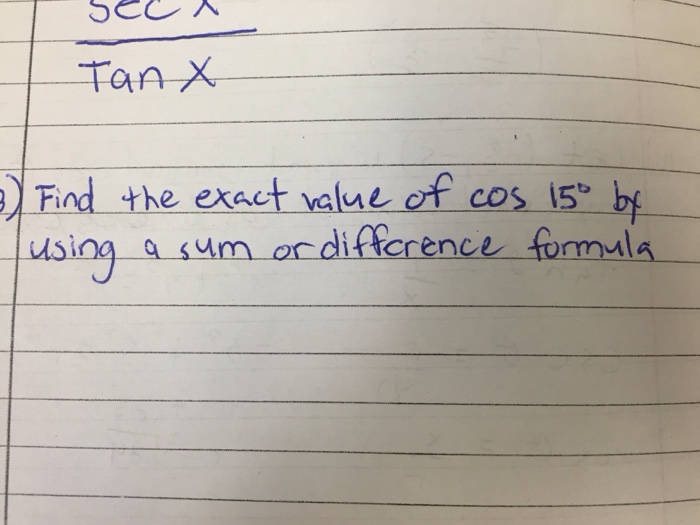 sec x
Tan X
3) Find the exact value of cos 15° by
using a sum or difference formula